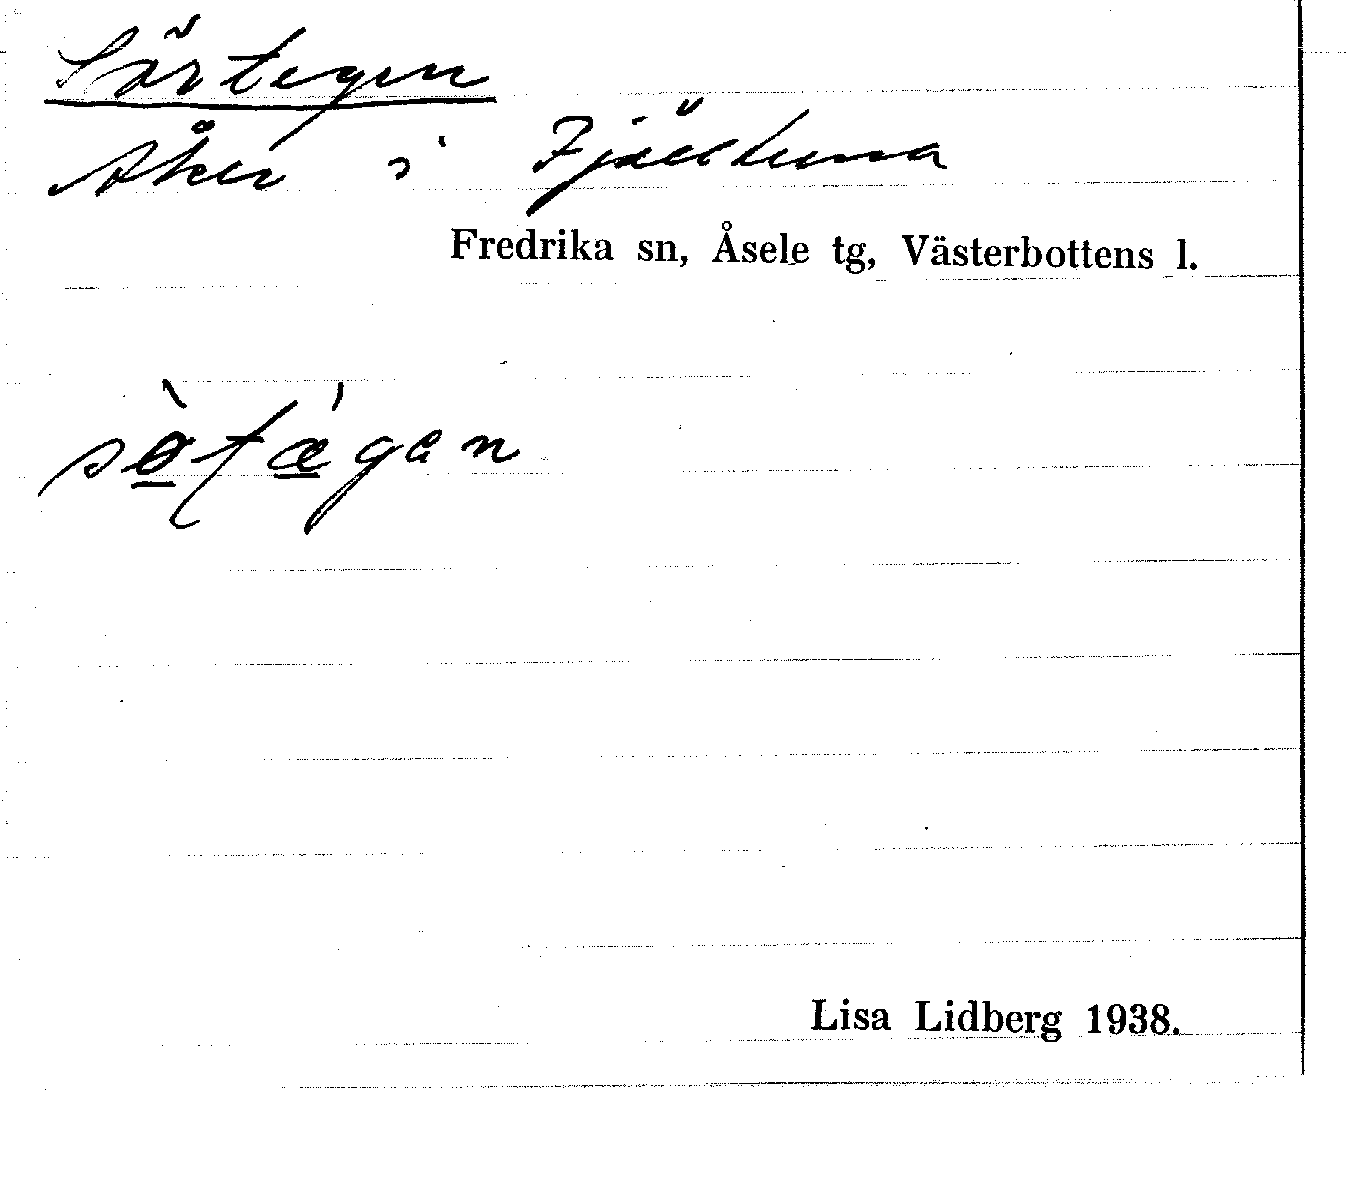 Sörtegen
Åker i Fjälltuna
Fredrika sn, Åsele tg, Västerbottens l.
sòtǽgan
Lisa Lidberg 1938.